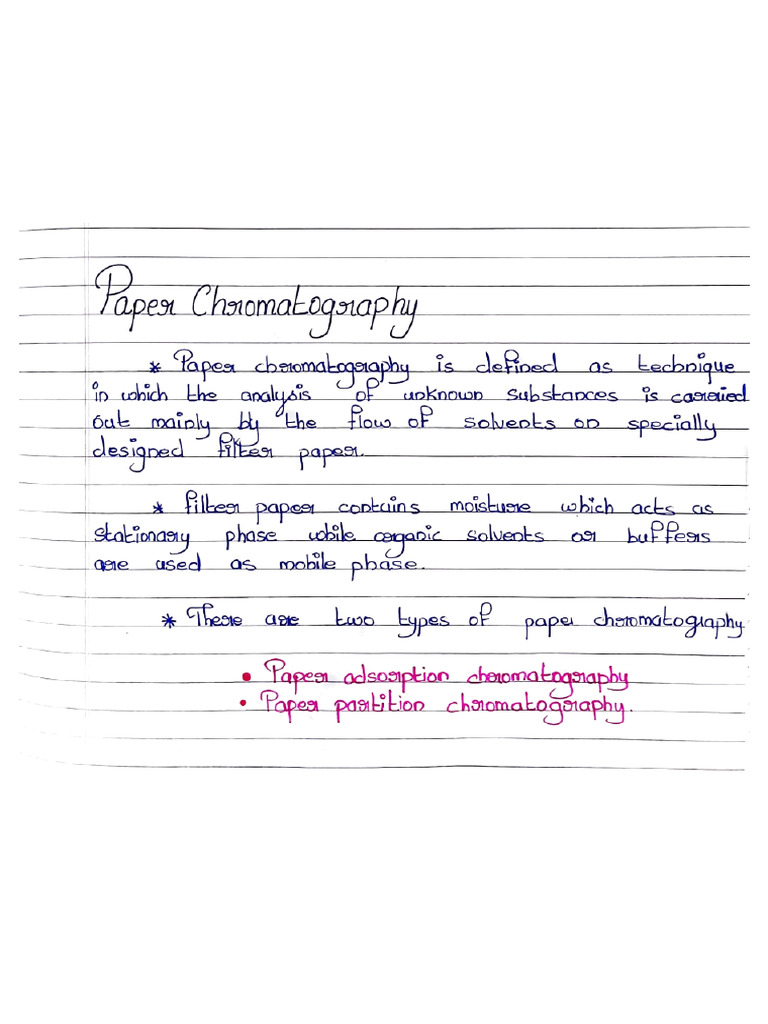 Paper Chromatography
* Paper chromatography is defined as technique
in which the analysis of unknown substances is carried
out mainly by the flow of solvents on specially
designed filter paper.
* filter paper contains moisture which acts as
stationary phase while organic solvents or buffers
are used as mobile phase.
* There are two types of paper chromatography
• Paper adsorption chromatography
• Paper partition chromatography.